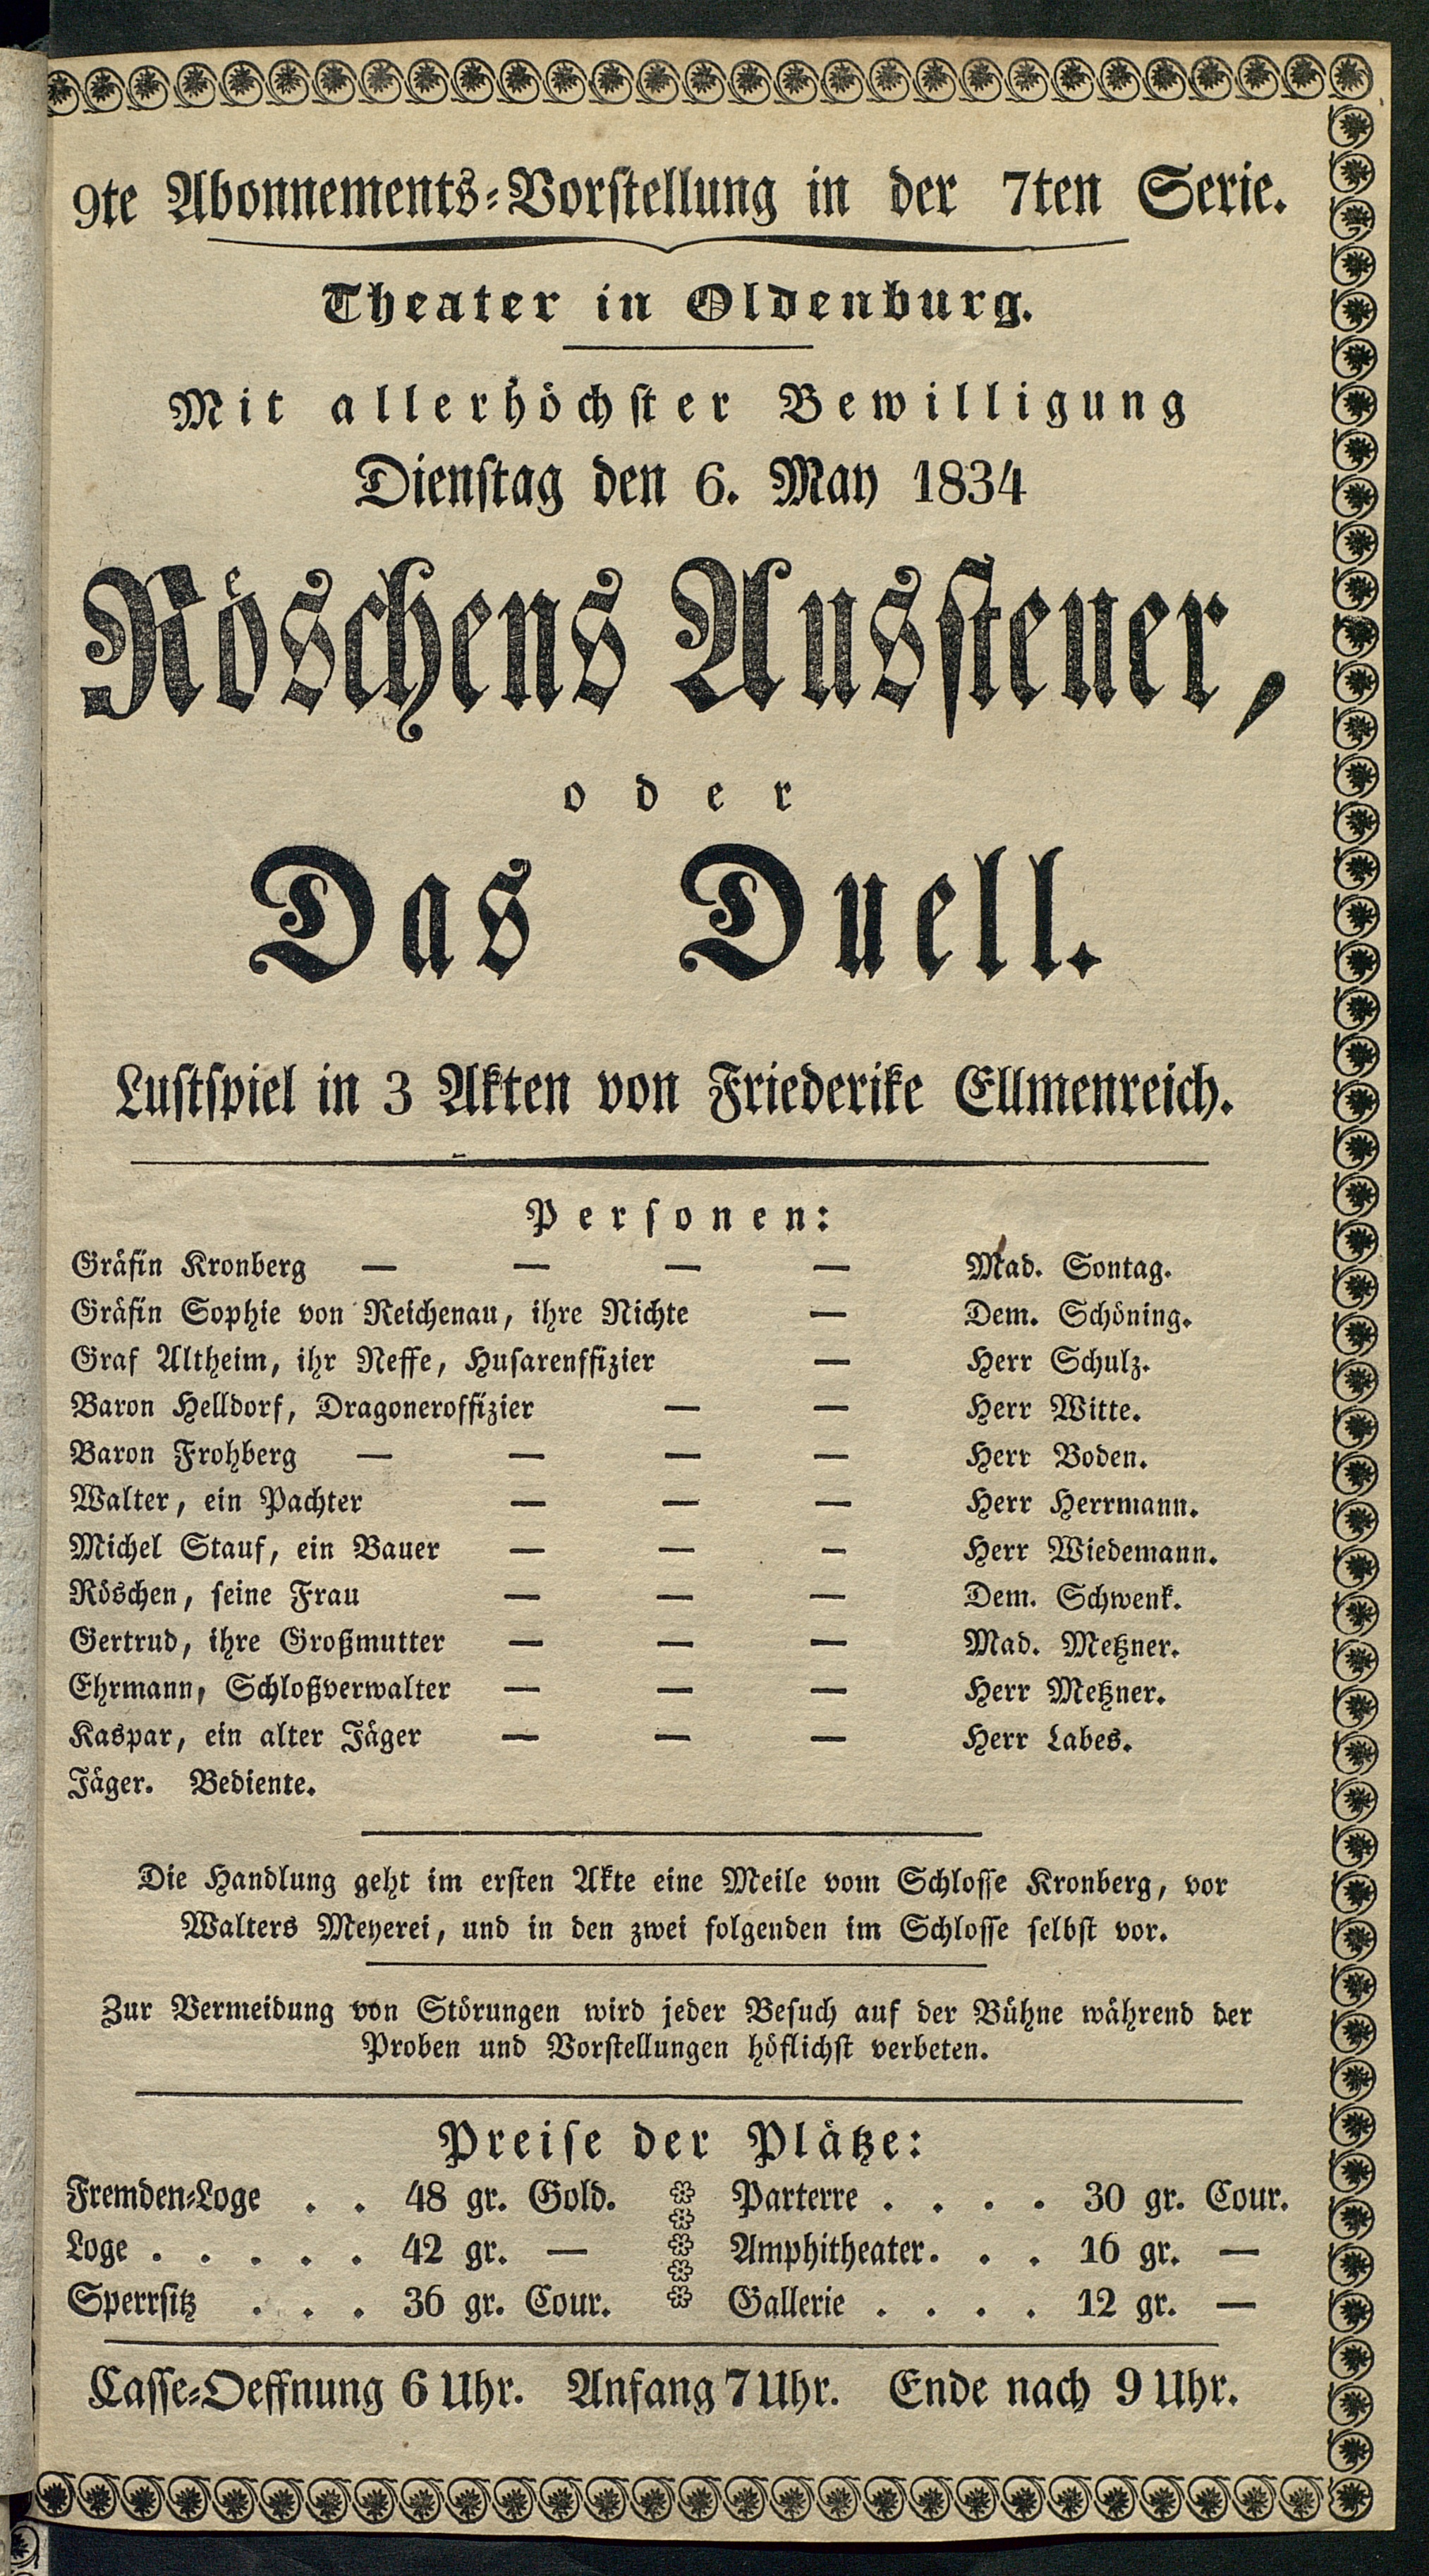 9te Abonnements-Vorstellung in der 7ten Serie.
Theater in Oldenburg.
Mit allerhöchster Bewilligung
Dienstag den 6. May 1834
Röschens Aussteuer,
oder
Das Duell.
Lustspiel in 3 Akten von Friederike Ellmenreich.
Personen:
Gräfin Kronberg — — — — Mad. Sontag.
Gräfin Sophie von Reichenau, ihre Nichte — Dem. Schöning.
Graf Altheim, ihr Neffe, Husarenffizier — Herr Schulz.
Baron Helldorf, Dragoneroffizier — — Herr Witte.
Baron Frohberg — — — — Herr Boden.
Walter, ein Pachter — — — Herr Herrmann.
Michel Stauf, ein Bauer — — — Herr Wiedemann.
Röschen, seine Frau — — — Dem. Schwenk.
Gertrud, ihre Großmutter — — — Mad. Metzner.
Ehrmann, Schloßverwalter — — — Herr Metzner.
Kaspar, ein alter Jäger — — — Herr Labes.
Jäger. Bediente.
Die Handlung geht im ersten Akte eine Meile vom Schlosse Kronberg, vor
Walters Meyerei, und in den zwei folgenden im Schlosse selbst vor.
Zur Vermeidung von Störungen wird jeder Besuch auf der Bühne während der
Proben und Vorstellungen höflichst verbeten.
Preise der Plätze:
Fremden-Loge . . 48 gr. Gold. Parterre . . . . 30 gr. Cour.
Loge . . . . . 42 gr. — Amphitheater. . . 16 gr. —
Sperrsitz . . . 36 gr. Cour. Gallerie . . . . 12 gr. —
Casse-Oeffnung 6 Uhr. Anfang 7 Uhr. Ende nach 9 Uhr.